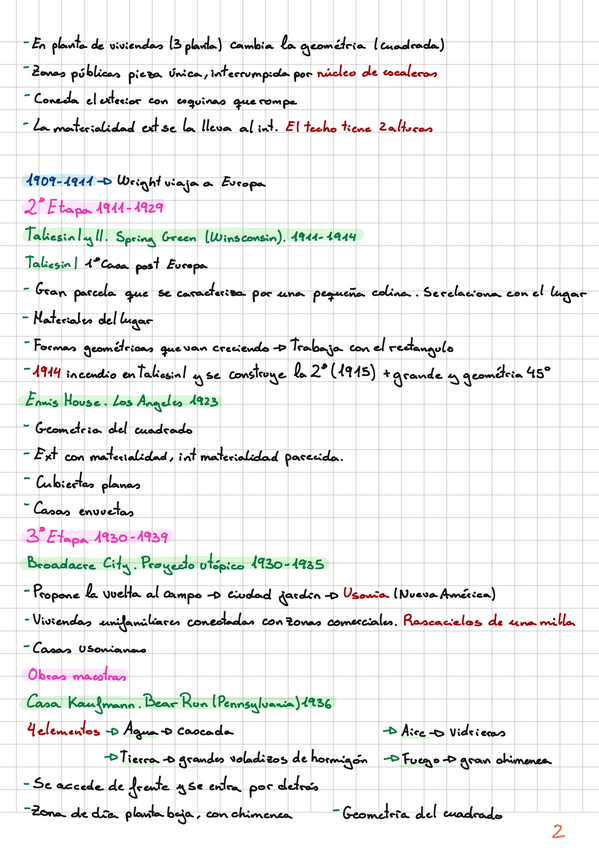 - En planta de viviendas (3 planta) cambia la geometría (cuadrada)
- Zonas públicas pieza única, interrumpida por núcleo de escaleras
- Conecta el exterior con esquinas que rompe
- La materialidad ext se la lleva al int. El techo tiene 2 alturas
1909-1911 → Wright viaja a Europa
2ª Etapa 1911-1929
Taliesin I y II. Spring Green (Winsconsin). 1911-1914
Taliesin I 1ª Casa post Europa
- Gran parcela que se caracteriza por una pequeña colina. Se relaciona con el lugar
- Materiales del lugar
- Formas geométricas que van creciendo → Trabaja con el rectangulo
- 1914 incendio en Taliesin I y se construye la 2ª (1915) + grande y geométria 45°
Ennis House. Los Angeles 1923
- Geometria del cuadrado
- Ext con materialidad, int materialidad parecida.
- Cubiertas planas
- Casas envuetas
3ª Etapa 1930-1939
Broadacre City. Proyecto utópico 1930-1935
- Propone la vuelta al campo → ciudad jardín → Usonia (Nueva América)
- Viviendas unifamiliares conectadas con zonas comerciales. Rascacielos de una milla
- Casas usonianas
Obras maestras
Casa Kaufmann. Bear Run (Pennsylvania) 1936
4 elementos → Agua → cascada → Aire → Vidrieras
→ Tierra → grandes voladizos de hormigón → Fuego → gran chimenea
- Se accede de frente y se entra por detrás
- Zona de día planta baja, con chimenea - Geometría del cuadrado
2